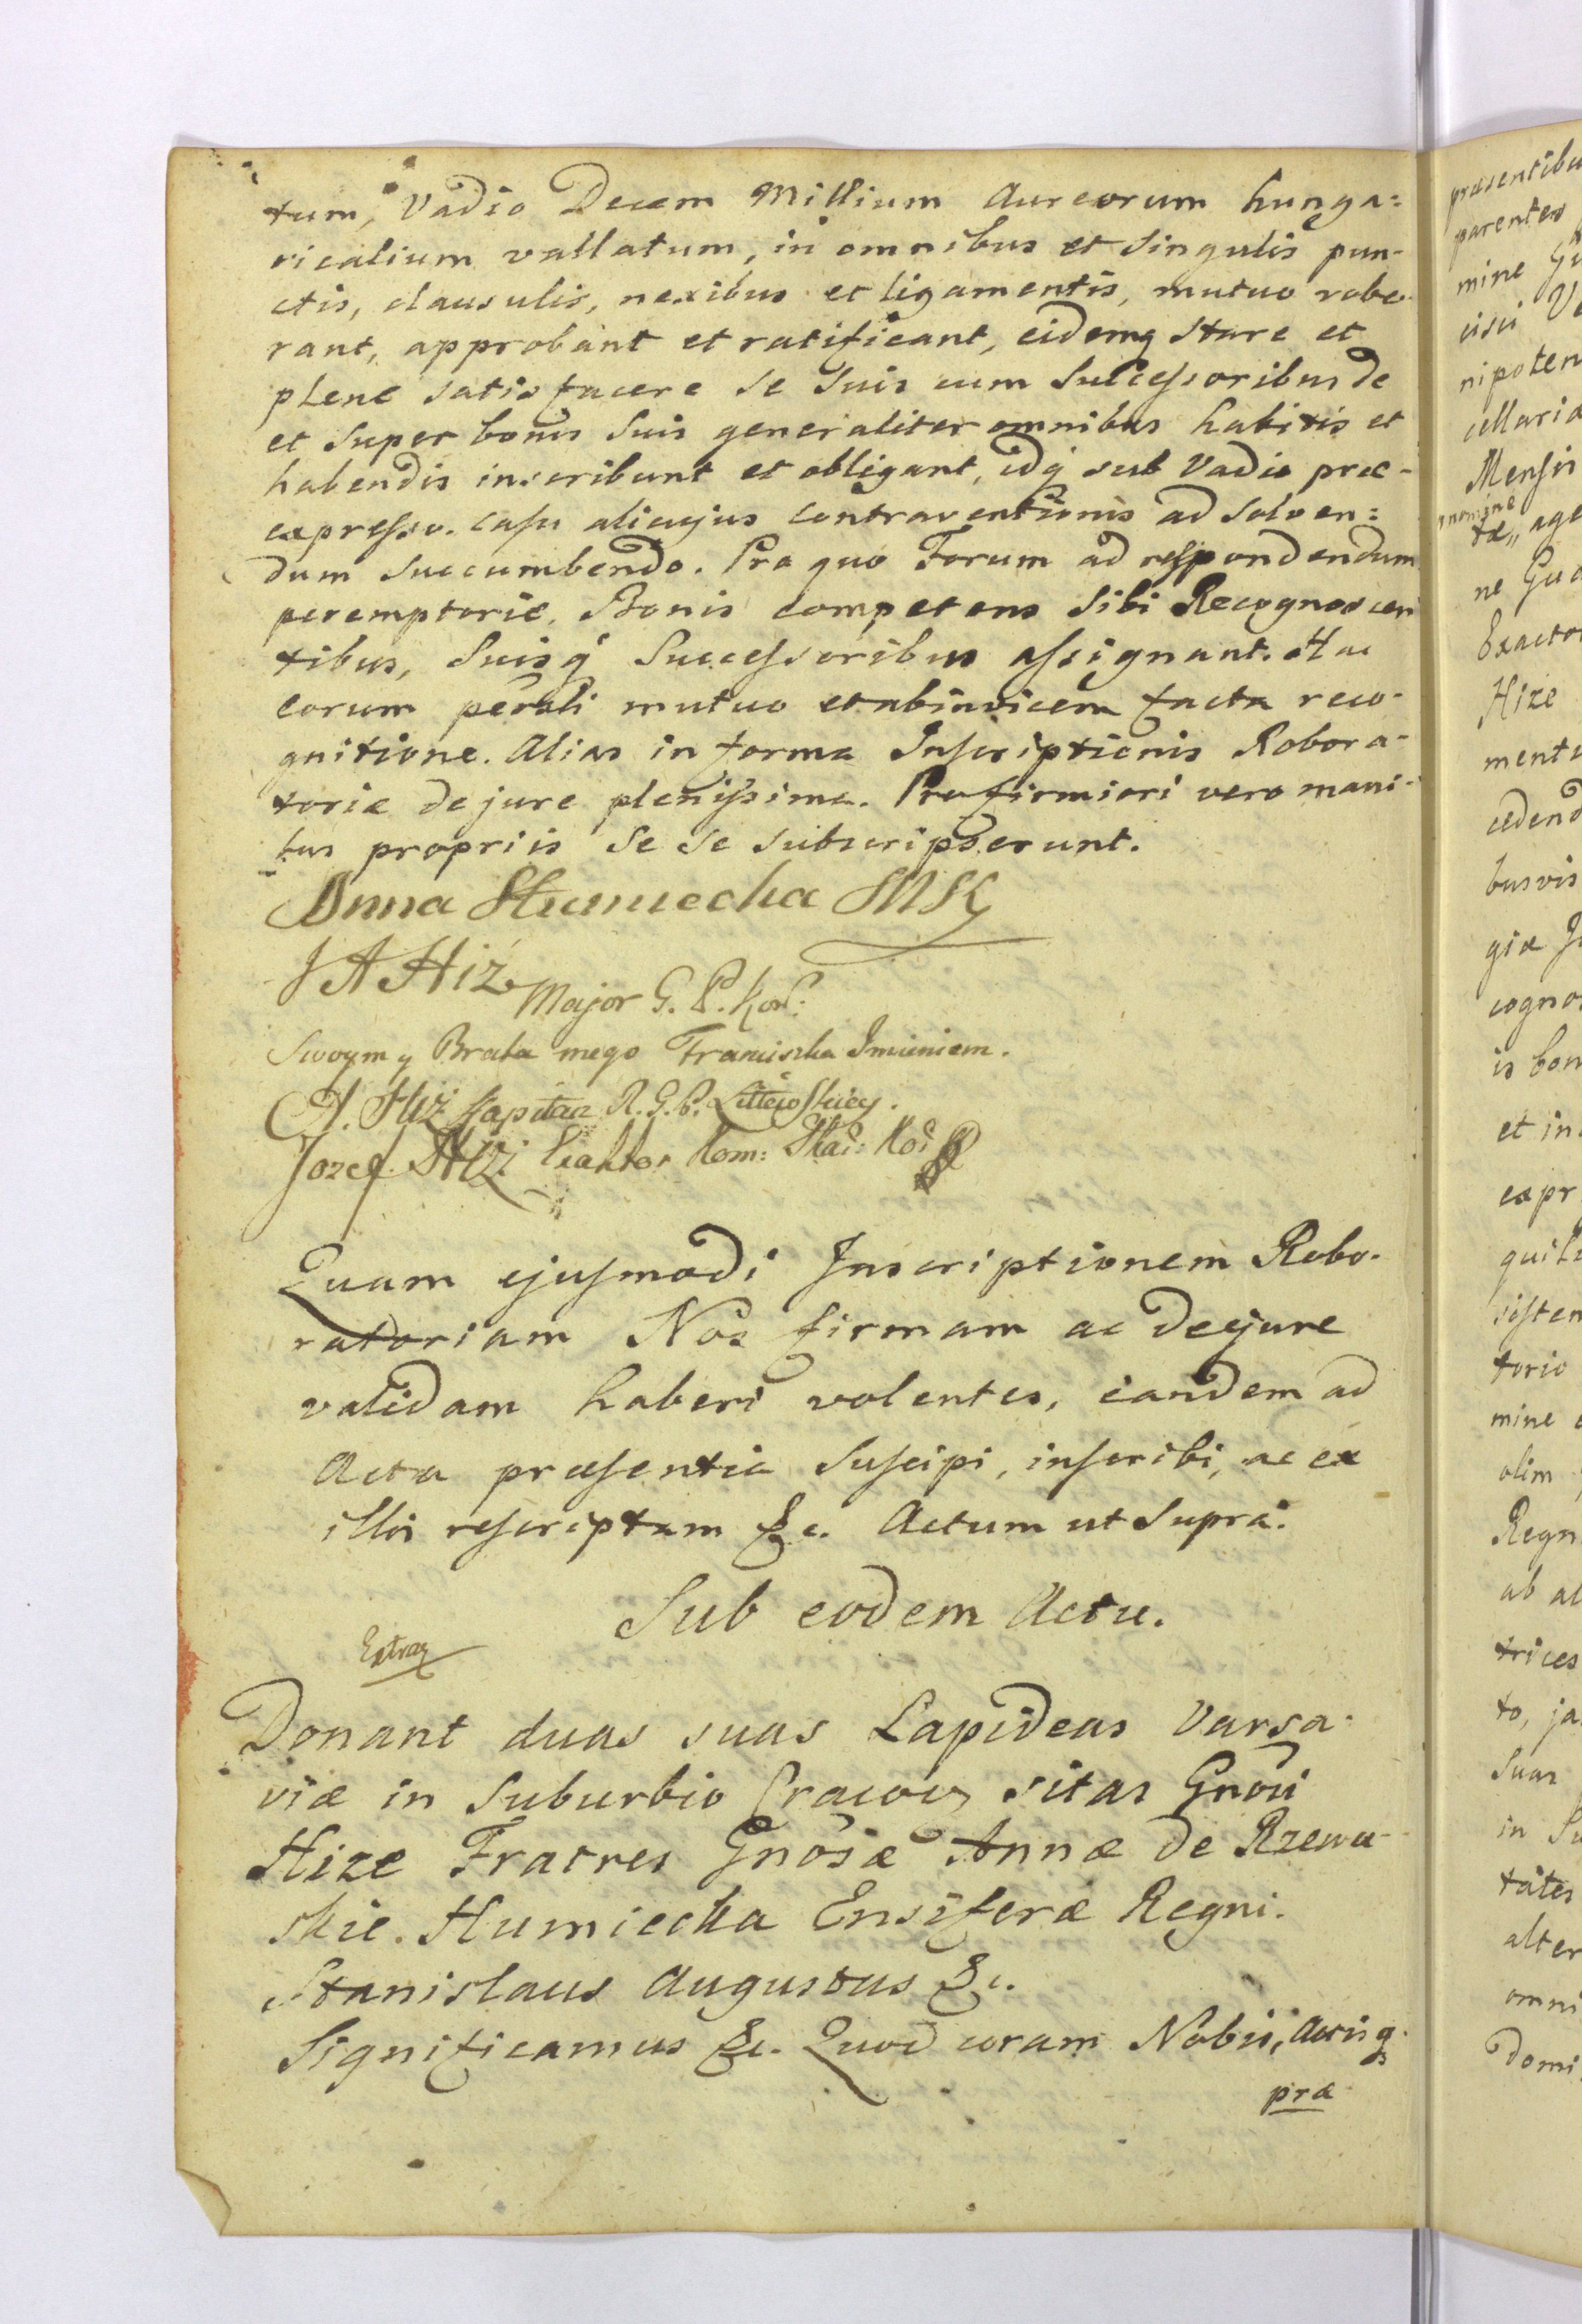 tum, Vadio Decem Millium Aureorum hunga=
ricalium vallatum, in omnibus et Singulis pun-
ctis, clausulis, nexibus et ligamentis, mutuo robo-
rant, approbant et ratificant, eidemq stare et
plene satisfacere se suis cum Successoribus de
et Super bonis Suis generaliter omnibus habitis et
habendis inscribunt et obligant, idq sub Vadio præ-
expresso. casu alicujus contraventionis ad solven=
dum succumbendo. Pro quo Forum ad respondendum
peremptorie, Bonis competens Sibi Recognoscen
tibus, Suisq Successoribus assignant. Hac
eorum mutuo et abinvicem facta reco-
gnitione. Alias in forma Inscriptionis Robora-
toriæ de jure plenissima. Pro firmiori vero mani-
bus propriis se se subscripserunt.
Anna Humiecka MK
J A Hiż Major G. P. Kor:
Swoym y Brata mego Franciszka Imieniem.
A. Hiż Kapitan R. G. P. Littewskiey.
Jozef Hiż Exaktor Kom: Skar: Ko:
Quam ejusmodi Inscriptionem Robo-
ratoriam Nos firmam ac de jure
validam haberi volentes, eandem ad
Acta præsentia suscipi, inscribi, ac ex
illis rescriptum &c. Actum ut Supra.
Sub eodem Actu.
Extrax
Donant duas suas Lapideas Varsa-
viæ in Suburbio Cracov sitas Gnosi
Hize Fratres Gnosæ Annæ de Rzewu-
skie. Humiecka Ensiferæ Regni.
Stanislaus Augustus &c.
Significamus &c. Quod coram Nobis, Actisq
præ
præsentibu
parentes
mine
nipoten
cellaria
Mensis
nomine
tæ,, age
ne
Exacto
Hize
mentu
cedend
busvis
giæ
cogno
is bon
et in
expr
sisten
torio
mine
olim
Regn
ab al
trices
to, ja
suas
in Su
tates
alter
omni
domi